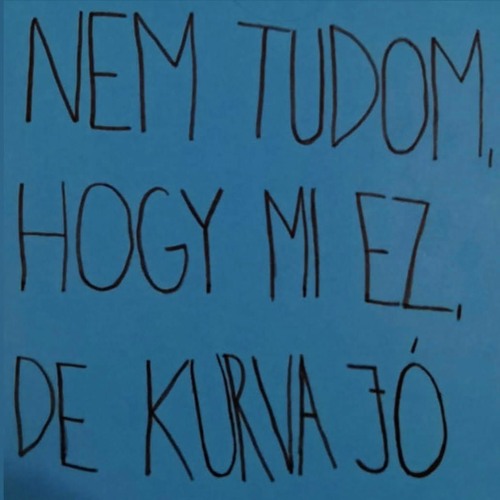 NEM TUDOM,
HOGY MI EZ,
DE KURVA JÓ